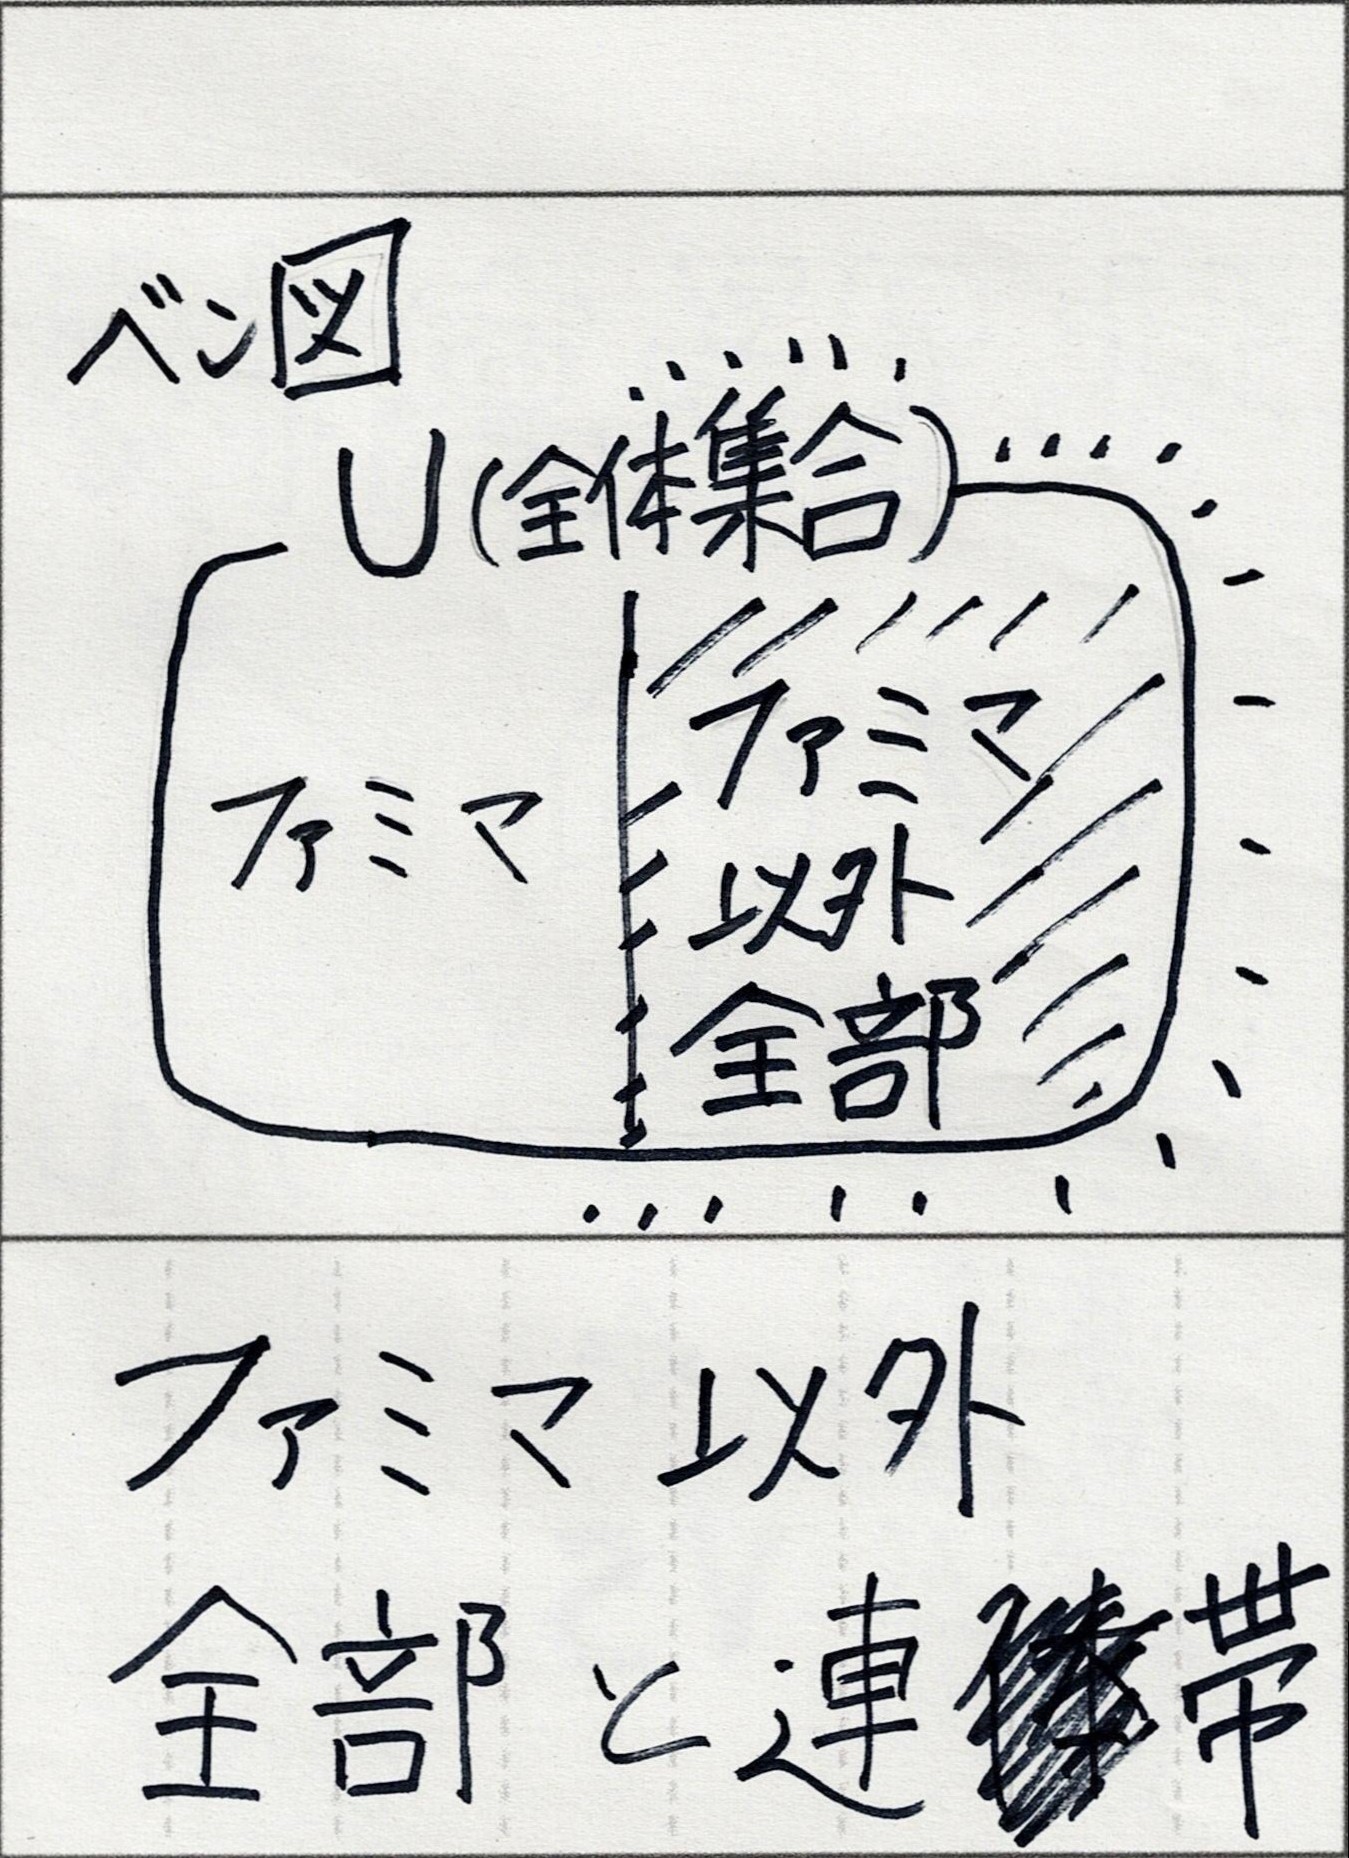 ベン図
U(全体集合)
ファミマ
ファミマ
以外
全部
ファミマ以外
全部と連帯